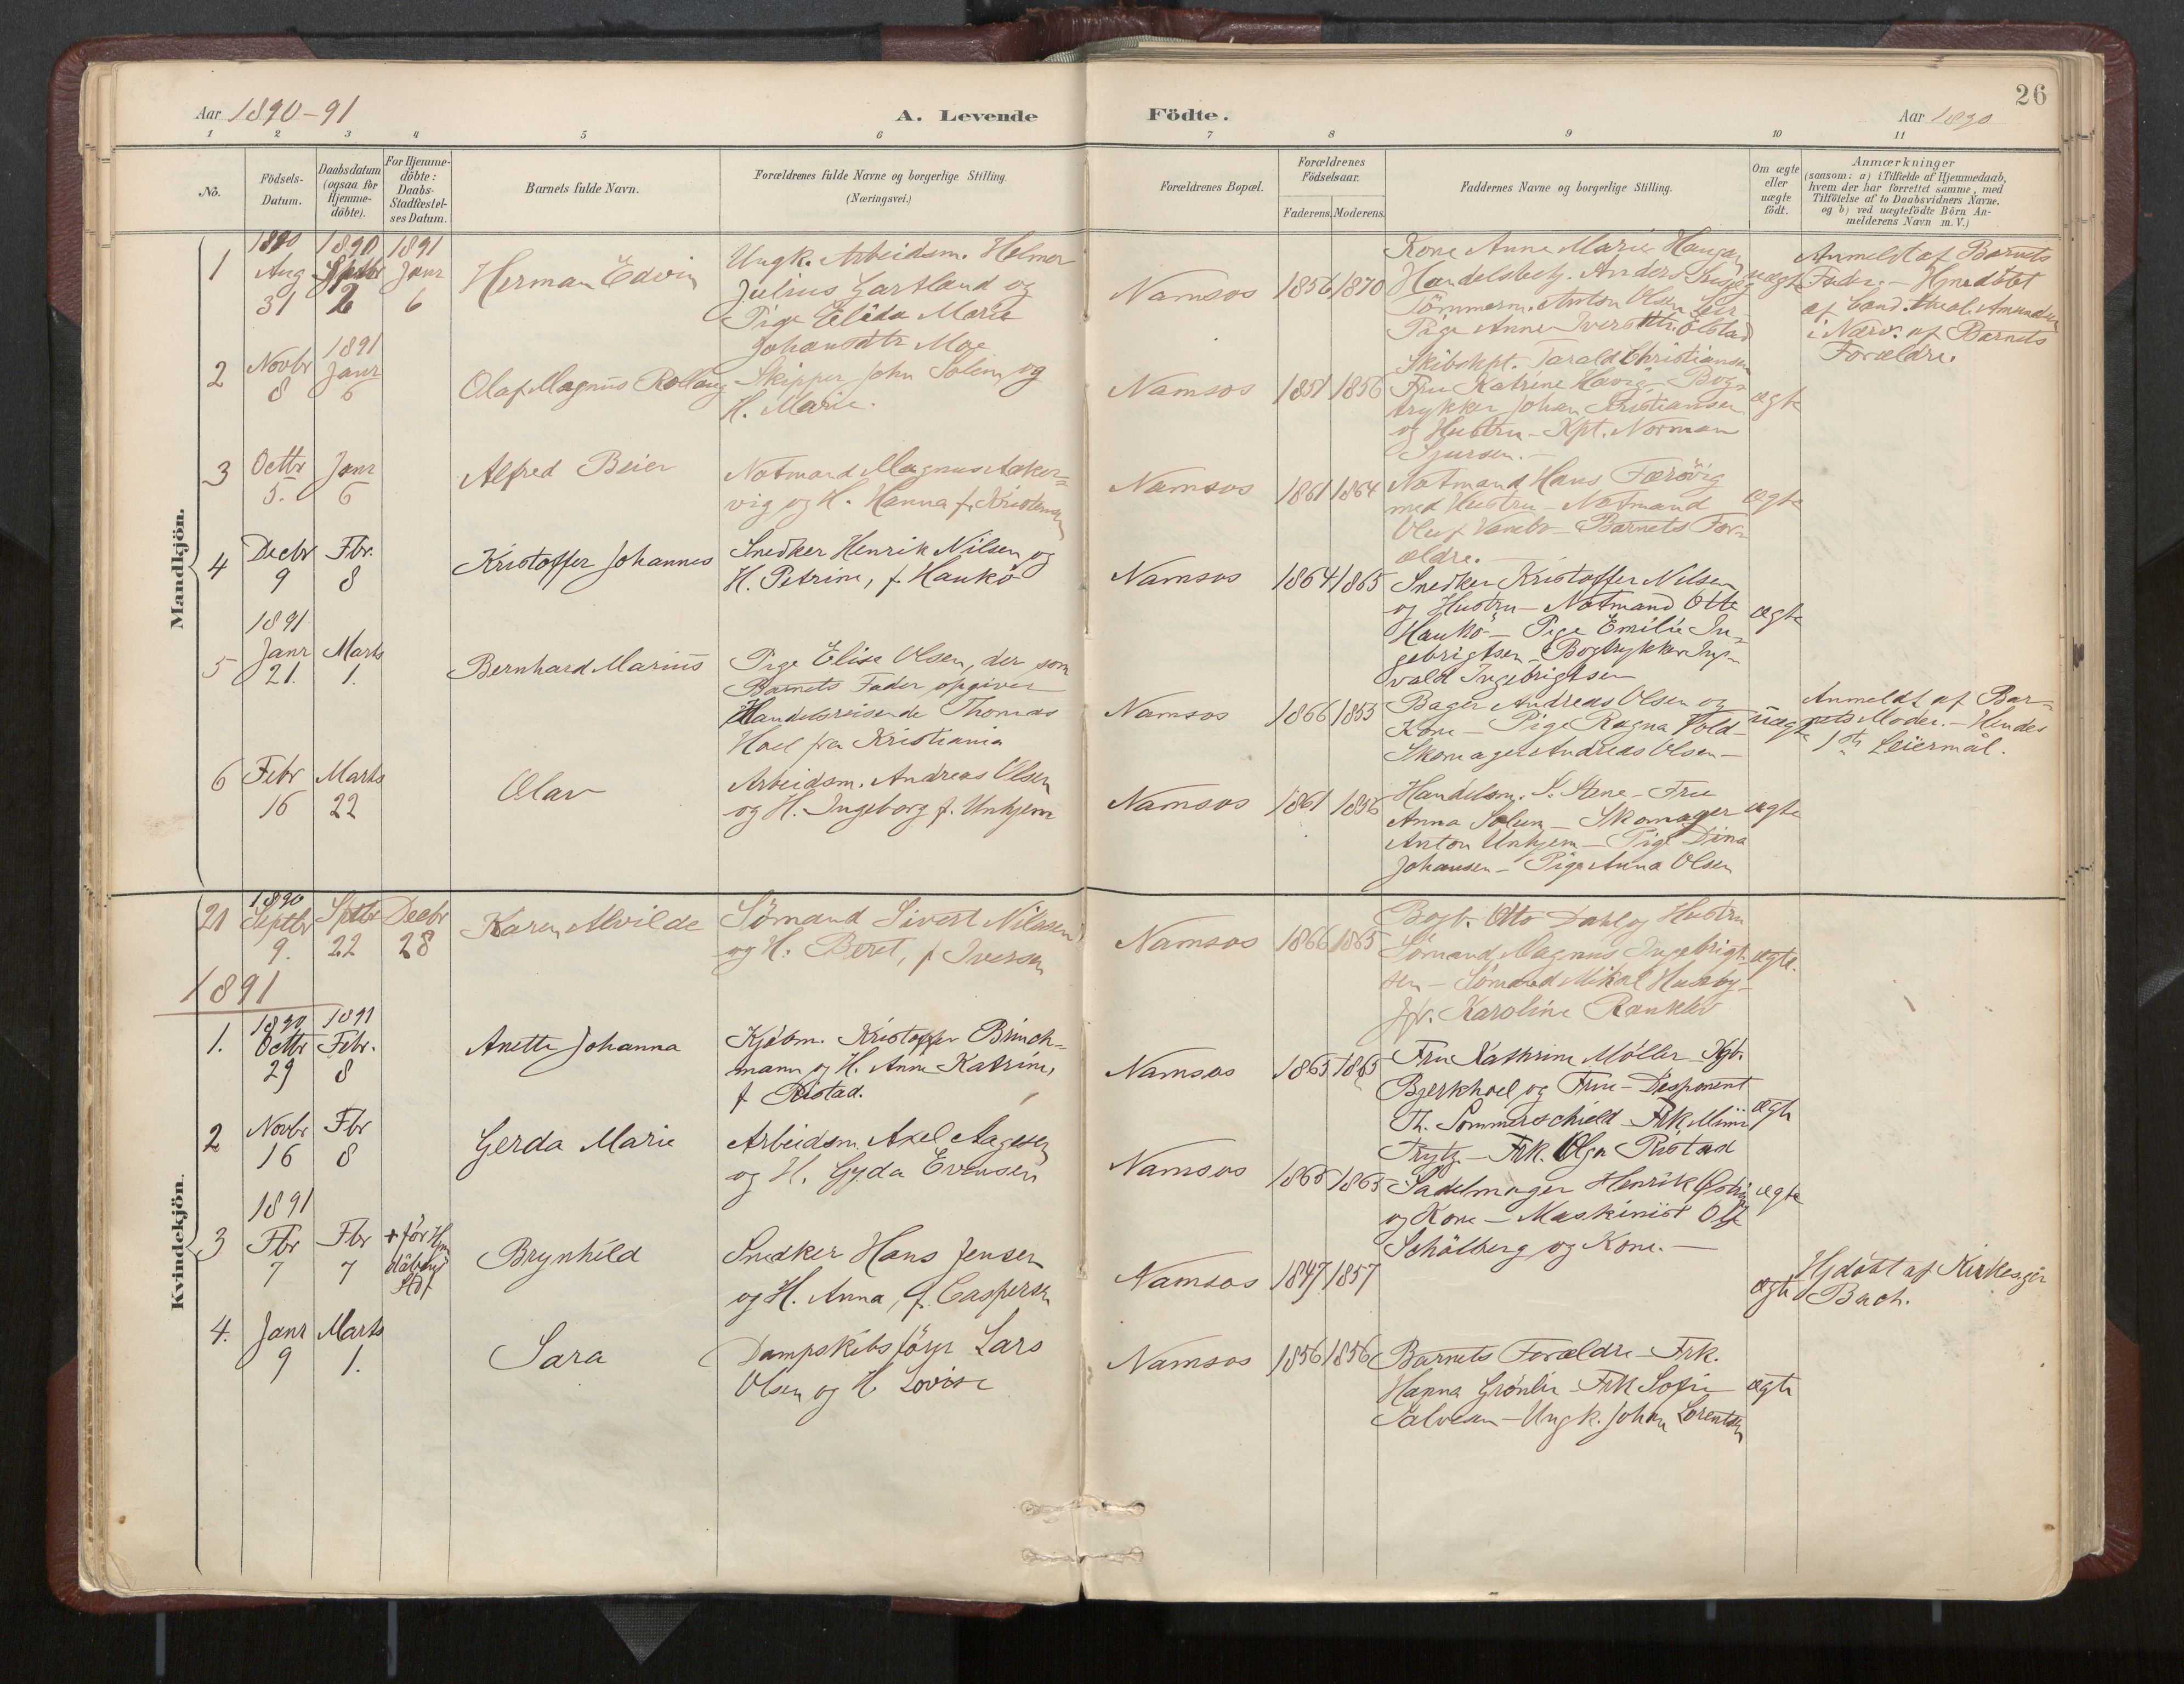 Aar 1890-91
A. Levende
Födte.
Aar 1890
26
1 2 3 4 5 6 7 8 9 10 11
No.
Födsels-
Datum.
Daabsdatum
(ogsaa for
Hjemme-
döbte).
For Hjemme-
döbte:
Daabs-
Stadfæstel-
ses Datum.
Barnets fulde Navn.
Forældrenes fulde Navne og borgerlige Stilling.
(Næringsvei.)
Forældrenes Bopæl.
Forældrenes
Födselsaar.
Faderens.
Moderens.
Faddernes Navne og borgerlige Stilling.
Om ægte
eller
uægte
födt.
Anmærkninger
(saasom: a) i Tilfælde af Hjemmedaab,
hvem der har forrettet samme, med
Tilföielse af to Daabsvidners Navne.
og b) ved uægtefödte Börn An-
melderens Navn m. V.)
Mandkjön.
1
1890
Aug
31
1890
Septbr
2
1891
Janr
6
Herman Edvin
Ungk. Arbeidsm. Helmer
Julius Gartland og
Pige Elida Marie
Johansdtr Moe
Namsos
1856
1870
Kone Anna Marie Haugan
Handelsbetj. Anders
Tömmerm. Anton Olsen
Pige Anne Iversdtr. Elstad
Skibskpt. Tarald Christiansen
uægte
Anmeldt af Barnets
Fader. - Hjmdöbt
af Cand. theol. Amundsen
i Nærv. af Barnets
Forældre.
2
Novbr
8
1891
Janr
6
Olaf Magnus Rolaug
Skipper John Solem og
H. Marie.
Namsos
1851
1856
Fru Katrine Havig - Bog-
trykker Johan Kristiansen
og Hustru - Kpt. Norman
Sjursen. -
ægte
3
Octbr
5.
Janr
6
Alfred Beier
Notmand Magnus Aaker-
vig og H. Hanna f. Kristensen
Namsos
1861
1864
Notmand Hans Færövig
med Hustru - Notmand
Oluf - Barnets For-
ældre. -
ægte
4
Decbr
9
Fbr.
8
Kristoffer Johannes
Snedker Henrik Nilsen og
H. Petrine, f. Haukö
Namsos
1864
1865
Snedker Kristoffer Nilsen
og Hustru - Notmand Otte
Haukö - Pige Emilie In-
gebrigtsen - Bogtrykker Ing-
vald Ingebrigtsen
ægte
5
1891
Janr
21.
Marts
1.
Bernhard Marius
Pige Elise Olsen, der som
Barnets Fader opgiver
Handelsreisende Thomas
Hoel fra Kristiania
Namsos
1866
1853
Bager Andreas Olsen og
Kone - Pige Ragna Fold-
Skomager Andreas Olsen -
uægte
Anmeldt af Bar-
nets Moder. - Hendes
1ste Leiermål.
6
Febr
16
Marts
22
Olav
Arbeidsm. Andreas Olsen
og H. Ingeborg f. Unhjem
Namsos
1861
1856
Handelsm. S. Stene - Fru
Anna Solum - Skomager
Anton Unhjem - Pige Dina
Johansen - Pige Anna Olsen
ægte
Kvindekjön.
21
1890
Septbr
9.
Sptbr
22
Decbr
28
Karen Alvilde
Sömand Sivert Nilssen
og H. Beret, f Iversen
Namsos
1866
1865
Bogb. Otto Dahl og Hustru
Sömand Magnus Ingebrigt-
sen - Sömand Mikal Husby -
Jfr. Karoline Ranklev
ægte.
1891
1.
1890
Octbr
29
1891
Febr.
8
Anette Johanna
Kjöbm. Kristoffer Brinch-
mann og H. Anne Katrine,
f. Ristad.
Namsos
1863
1865
Fru Kathrine Möller - Kjb.
Bjerkhoel og Frue - Disponent
Th. Sommerschield - Frk. Mimi
Trytz - Frk. Olga Ristad
ægte
2
Novbr
16
Fbr
8
Gerda Marie
Arbeidsm Axel Aagesen
og H. Gyda Evensen
Namsos
1865
1865
Sadelmager Henrik
og Kone - Maskinist Ole
Schölberg og Kone. -
ægte
3
1891
Fbr
7
Fbr
7
+ för Hjm
däbens
Stdf
Brynhild
Snedker Hans Jensen
og H. Anna, f. Caspersen
Namsos
1847
1857
ægte
Hjdöbt af Kirkesgr
Bach.
4.
Janr
9
Marts
1.
Sara
Dampskibsförer Lars
Olsen og H. Lovise
Namsos
1856
1856
Barnets Forældre - Frk.
Hanna Grönlie - Frk Sofie
Salvesen - Ungk. Johan Lorentzen
ægte